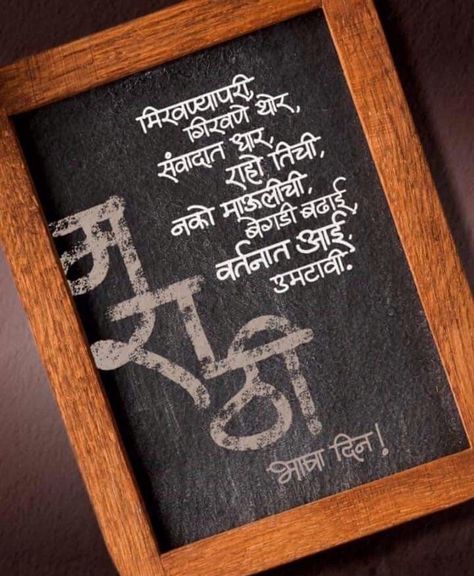 मिरवण्यापरी,
गिरवणे थोर,
संवादात धार,
राहो तिची,
नको माऊलीची,
बेगडी बढाई,
वर्तनात आई,
उमटावी.
म
रा
ठी
भाषा दिन!